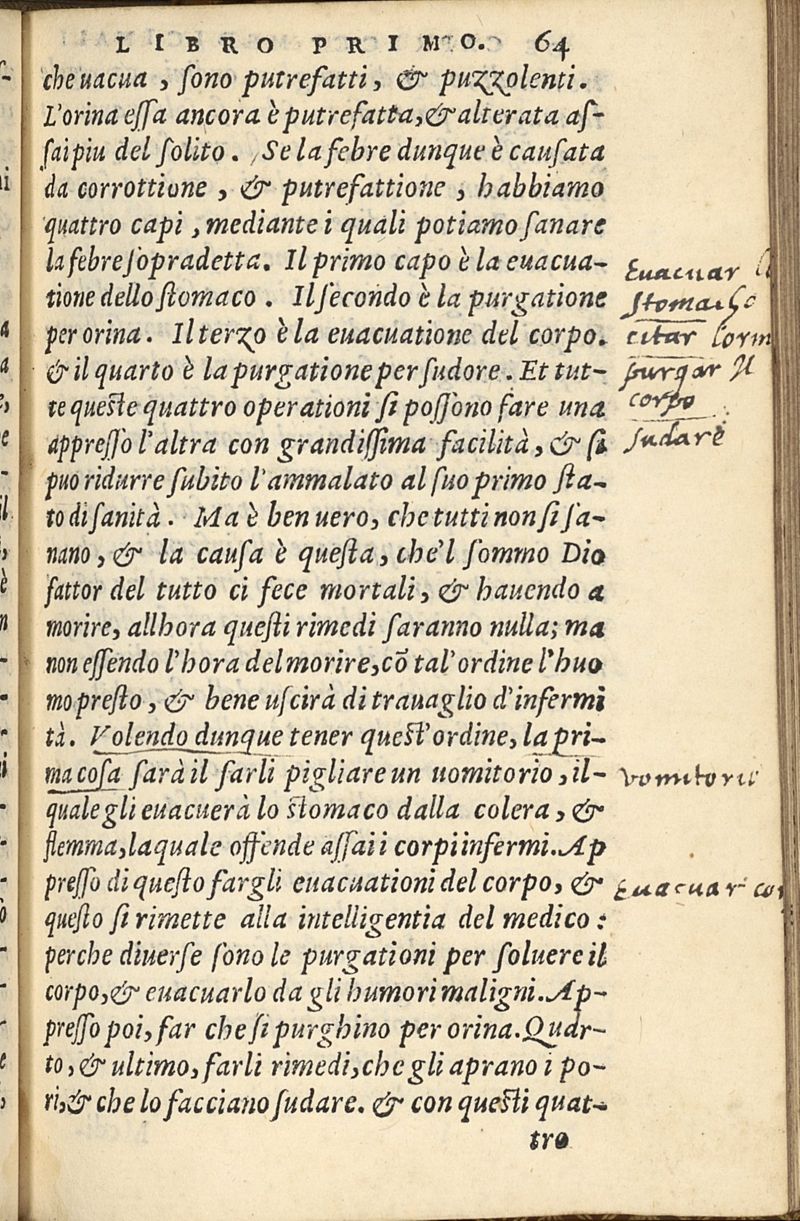 LIBRO PRIMO. 64
che uacua, sono putrefatti, & puzzolenti.
L'orina essa ancora è putrefatta, & alterata as-
sai piu del solito. Se la febre dunque è causata
da corrottione, & putrefattione, habbiamo
quattro capi, mediante i quali potiamo sanare
la febre sopradetta. Il primo capo è la euacua-
tione dello stomaco. Il secondo è la purgatione
per orina. Il terzo è la euacuatione del corpo.
& il quarto è la purgatione per sudore. Et tut-
te queste quattro operationi si possono fare una
appresso l'altra con grandissima facilità, & si
puo ridurre subito l'ammalato al suo primo sta-
to di sanità. Ma è ben uero, che tutti non si sa-
nano, & la causa è questa, che'l sommo Dio
fattor del tutto ci fece mortali, & hauendo a
morire, allhora questi rimedi saranno nulla; ma
non essendo l'hora del morire, cō tal'ordine l'huo
mo presto, & bene uscirà di trauaglio d'infermi
tà. Volendo dunque tener quest'ordine, la pri-
ma cosa sarà il farli pigliare un uomitorio, il-
quale gli euacuerà lo stomaco dalla colera, &
flemma, laquale offende assai i corpi infermi. Ap
presso di questo fargli euacuationi del corpo, &
questo si rimette alla intelligentia del medico:
perche diuerse sono le purgationi per soluere il
corpo, & euacuarlo da gli humori maligni. Ap-
presso poi, far che si purghino per orina. Quar-
to, & ultimo, farli rimedi, che gli aprano i po-
ri, & che lo facciano sudare. & con questi quat-
tro
Euacuar
stomacho
citar l'orin
purgar il
corpo
sudare
vomitorii
Euacuar cor